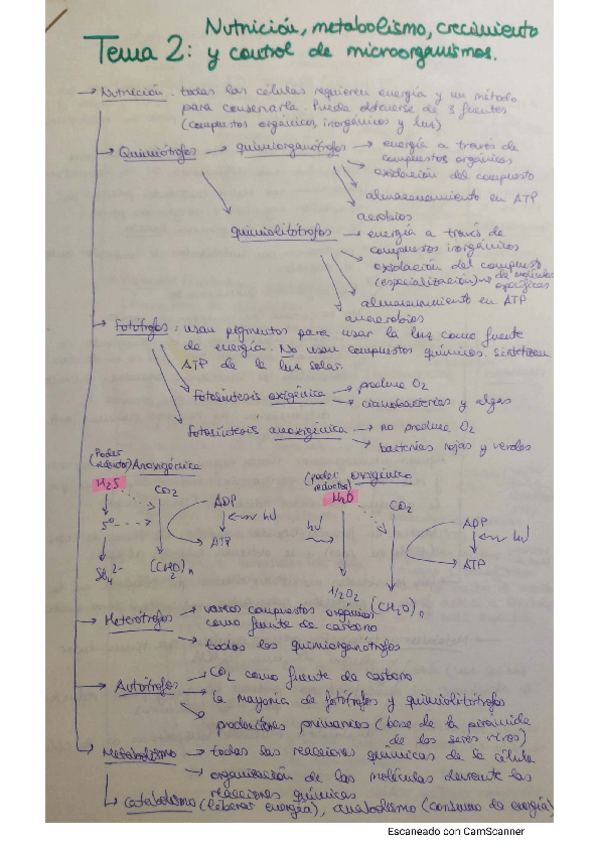 Nutrición, metabolismo, crecimiento
Tema 2: y control de microorganismos.
→ Nutrición: todas las células requieren energía y un método
para conservarla. Puede obtenerse de 3 fuentes
(compuestos orgánicos, inorgánicos y luz)
→ Quimiótrofos → quimiorganótrofos → energía a través de
compuestos orgánicos
oxidación del compuesto
almacenamiento en ATP
aerobios
quimiolitótrofos → energía a través de
compuestos inorgánicos
oxidación del compuesto
(especialización) → de moléculas
específicas
almacenamiento en ATP
anaerobios
→ Fotótrofos: usan pigmentos para usar la luz como fuente
de energía. No usan compuestos químicos. Sintetizan
ATP de la luz solar.
fotosíntesis oxigénica → produce O2
→ cianobacterias y algas
fotosíntesis anoxigénica → no produce O2
→ bacterias rojas y verdes
(poder
reductor) Anoxigénica
H2S CO2 ADP
S° hν
ATP
SO4 2- (CH2O)n
(poder
reductor) oxigénica
H2O CO2
hν ADP
hν
ATP
1/2 O2 (CH2O)n
→ Heterótrofos → varios compuestos orgánicos
como fuente de carbono
→ todos los quimiorganótrofos
→ Autótrofos → CO2 como fuente de carbono
→ la mayoría de fotótrofos y quimiolitótrofos
→ productores primarios (base de la pirámide
de los seres vivos)
→ Metabolismo → todas las reacciones químicas de la célula
→ organización de las moléculas durante las
reacciones químicas
→ Catabolismo (liberar energía), anabolismo (consumo de energía)
Escaneado con CamScanner